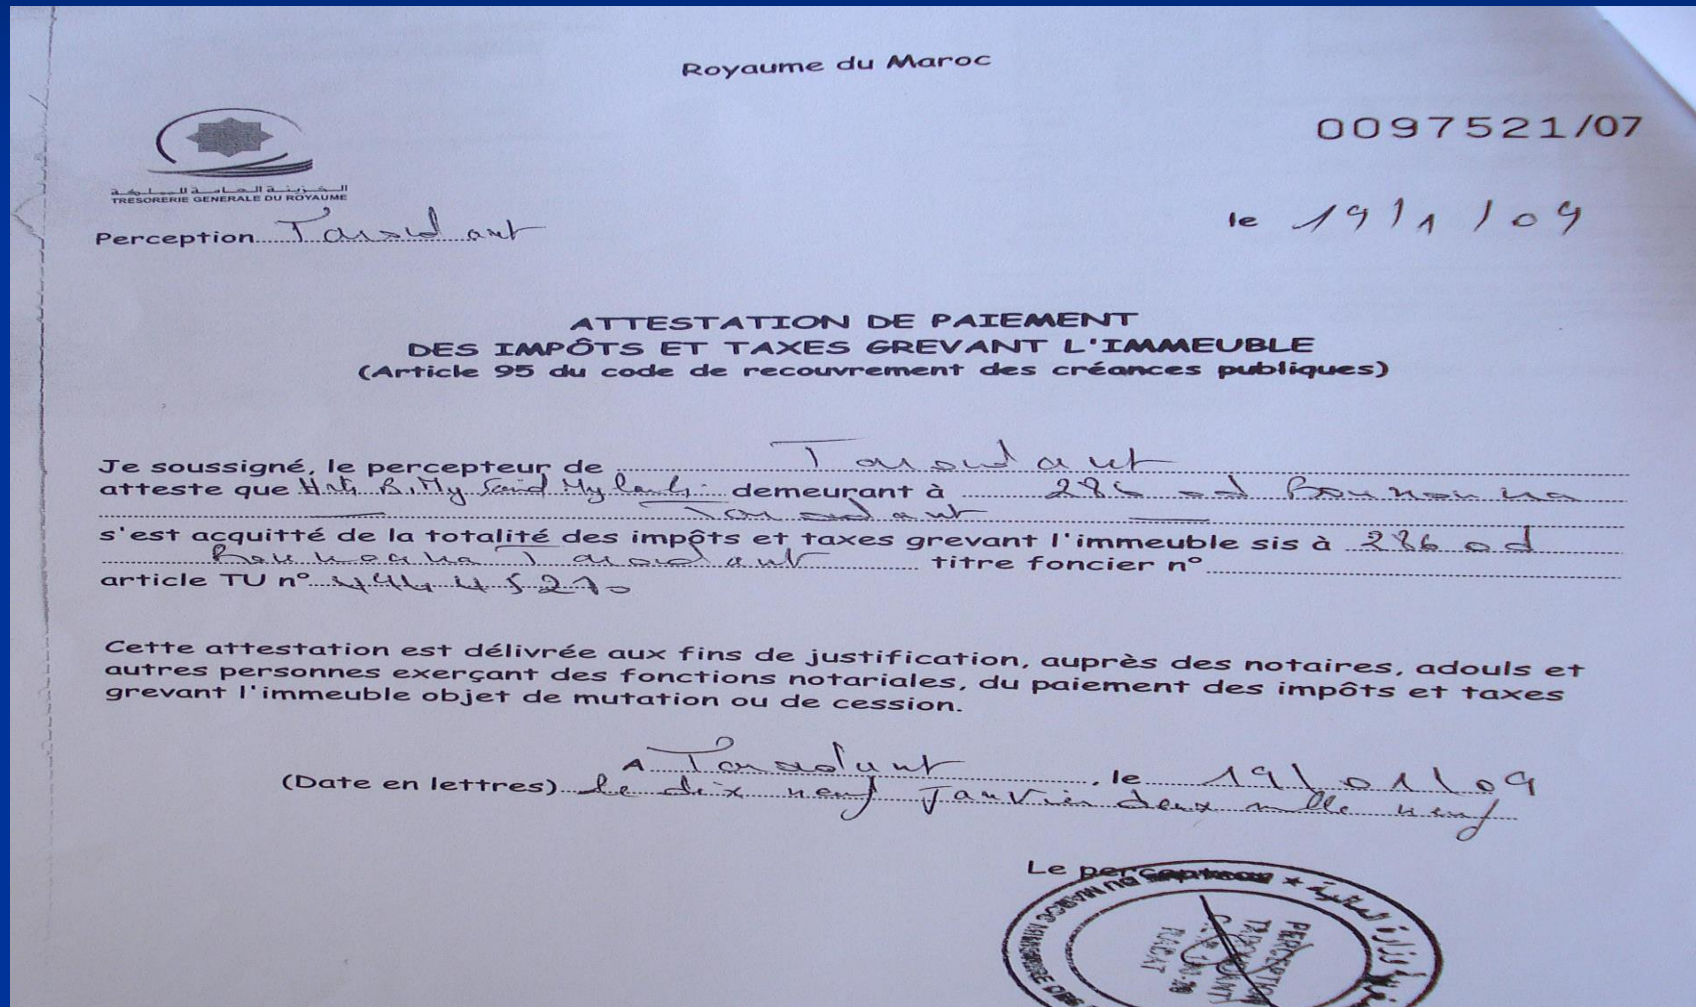 Royaume du Maroc
0097521/07
الخزينة العامة للمملكة
TRÉSORERIE GENERALE DU ROYAUME
Perception Taroudant
le 19/1/09
ATTESTATION DE PAIEMENT
DES IMPÔTS ET TAXES GREVANT L'IMMEUBLE
(Article 95 du code de recouvrement des créances publiques)
Je soussigné, le percepteur de Taroudant
atteste que B. My Said My demeurant à 286
Taroudant
s'est acquitté de la totalité des impôts et taxes grevant l'immeuble sis à 286
Taroudant titre foncier n°
article TU n°
Cette attestation est délivrée aux fins de justification, auprès des notaires, adouls et
autres personnes exerçant des fonctions notariales, du paiement des impôts et taxes
grevant l'immeuble objet de mutation ou de cession.
A Taroudant, le 19/01/09
(Date en lettres) le dix neuf Janvier deux mille neuf
Le percepteur
وزارة المالية
PERCEPTION